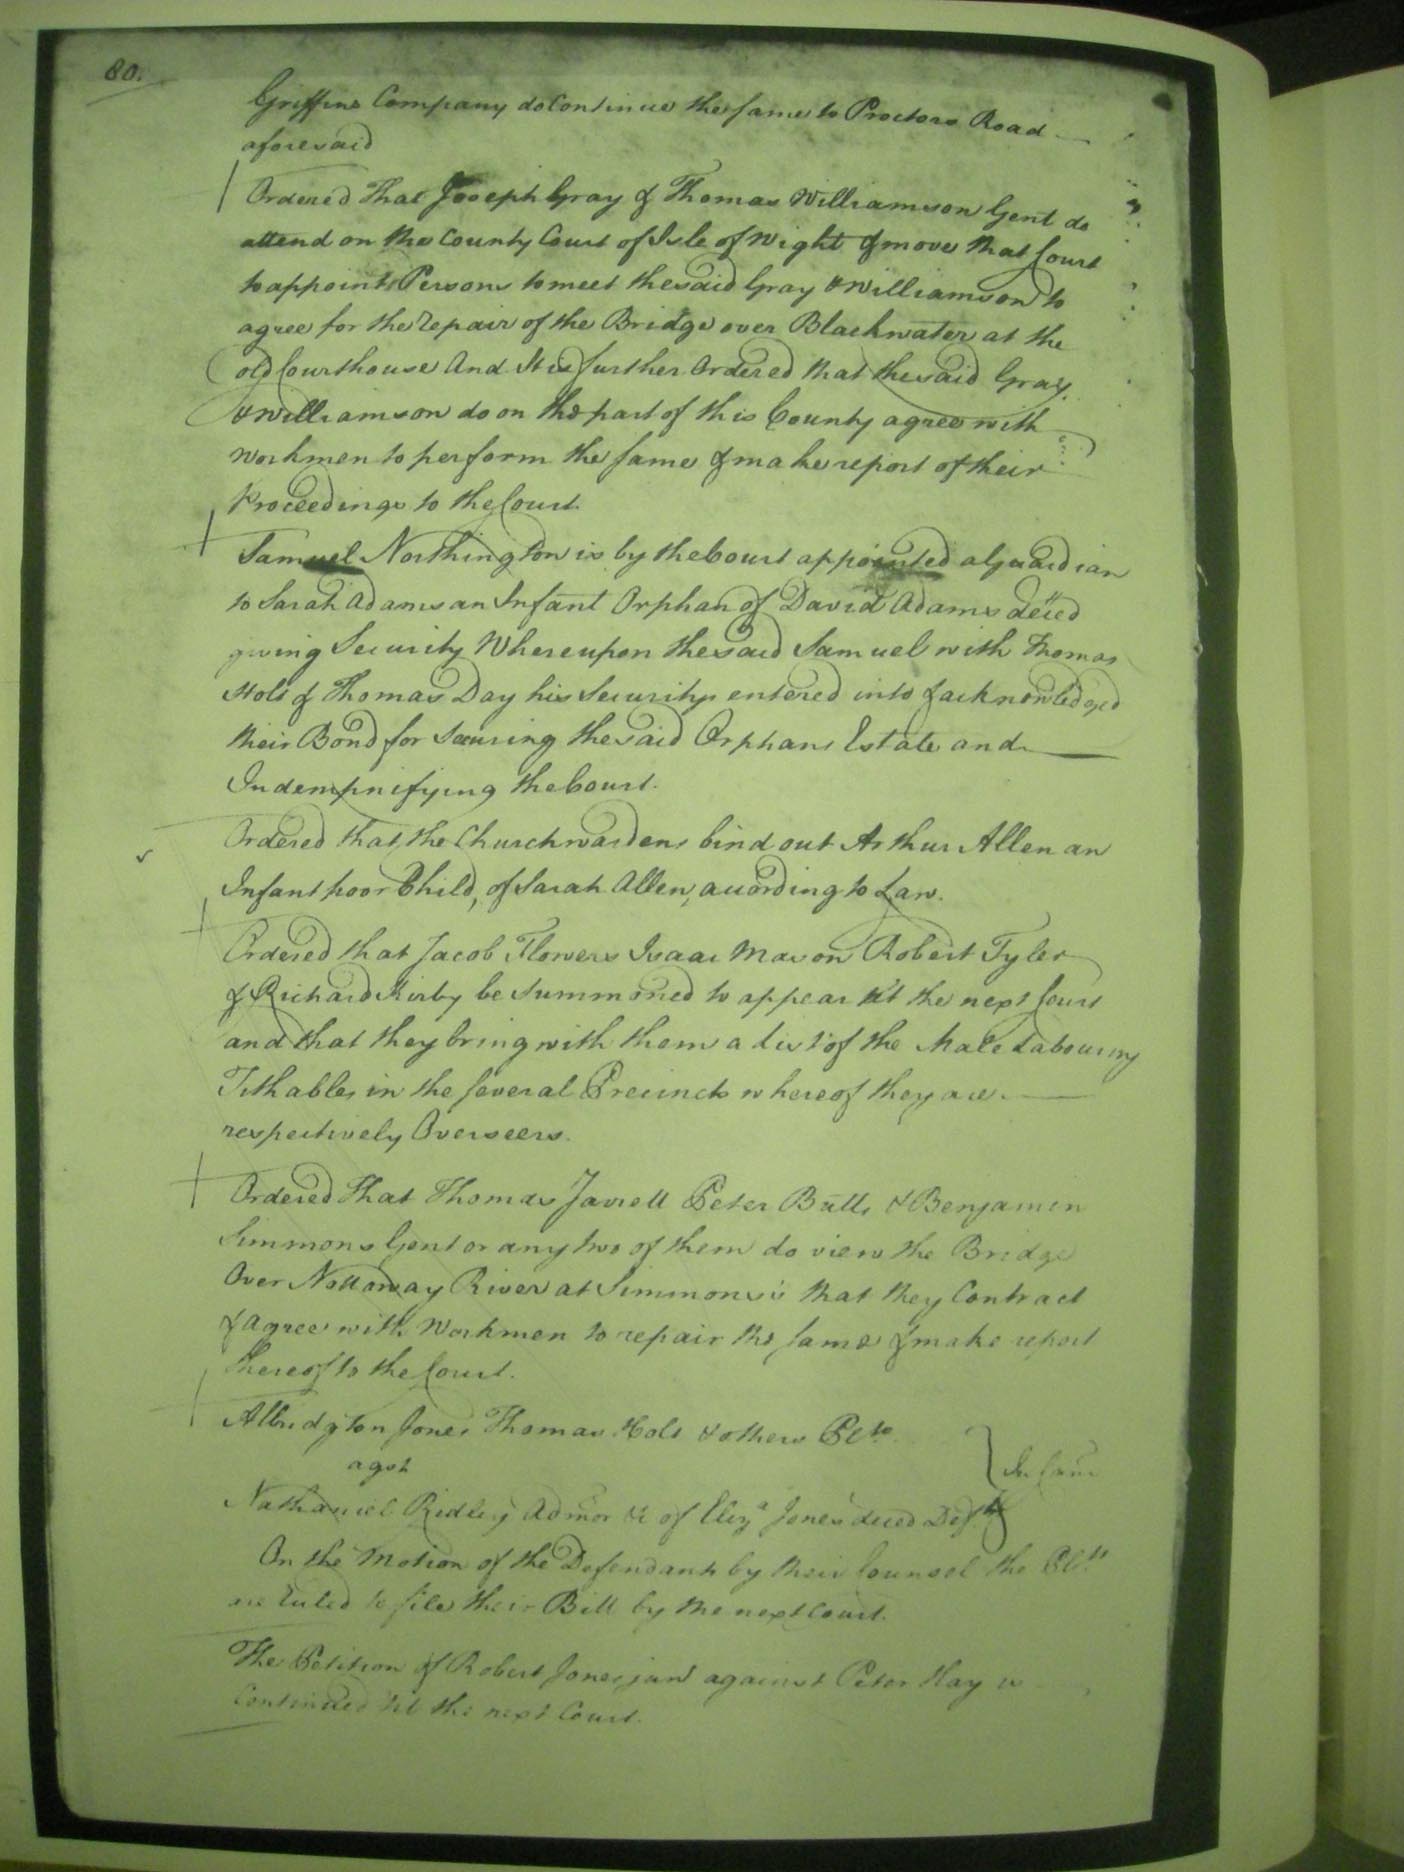 80.
Griffins Company do Continue the same to Proctors Road
aforesaid
Ordered that Joseph Gray & Thomas Williamson Gent do
attend on the County Court of Isle of Wight & move that Court
to appoint Persons to meet the said Gray & Williamson to
agree for the repair of the Bridge over Blackwater at the
old Courthouse And It is further Ordered that the said Gray
& Williamson do on the part of this County agree with
workmen to perform the same & make report of their
Proceedings to the Court.
Samuel Northington is by the Court appointed a Guardian
to Sarah Adams an Infant Orphan of David Adams deced
giving Security Whereupon the said Samuel with Thomas
Holt & Thomas Day his Security entered into & acknowledged
their Bond for Securing the said Orphans Estate and
Indempnifying the Court.
Ordered that the Churchwardens bind out Arthur Allen an
Infant poor Child, of Sarah Allen, according to Law.
Ordered that Jacob Flowers Isaac Mason Robert Tyler
& Richard Kirby be Summoned to appear at the next Court
and that they bring with them a List of the Male Labouring
Tithables in the several Precincts whereof they are
respectively Overseers.
Ordered that Thomas Jarrell Peter Butts & Benjamin
Simmons Gent or any two of them do view the Bridge
Over Nottoway River at Simmons's that they Contract
& agree with Workmen to repair the same & make report
thereof to the Court.
Albridgton Jones Thomas Holt & others Plts
agst
In Canc
Nathaniel Ridley Admor &c of Eliza Jones deced Deft
On the Motion of the Defendant by their Counsel the Plts
are ruled to file their Bill by the next Court.
The Petition of Robert Jones junr against Peter Hay is
Continued til the next Court.